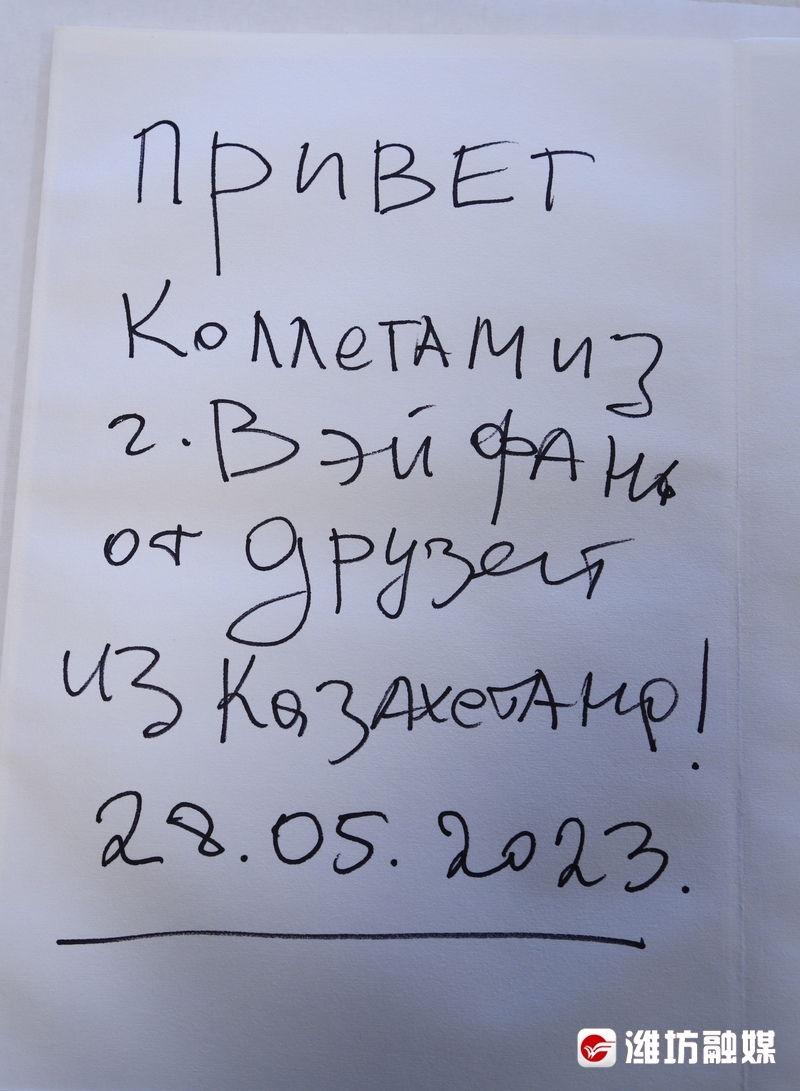 Привет
Коллегам из
г. Вэйфань
от друзей
из Казахстана!
28.05.2023.
潍坊融媒